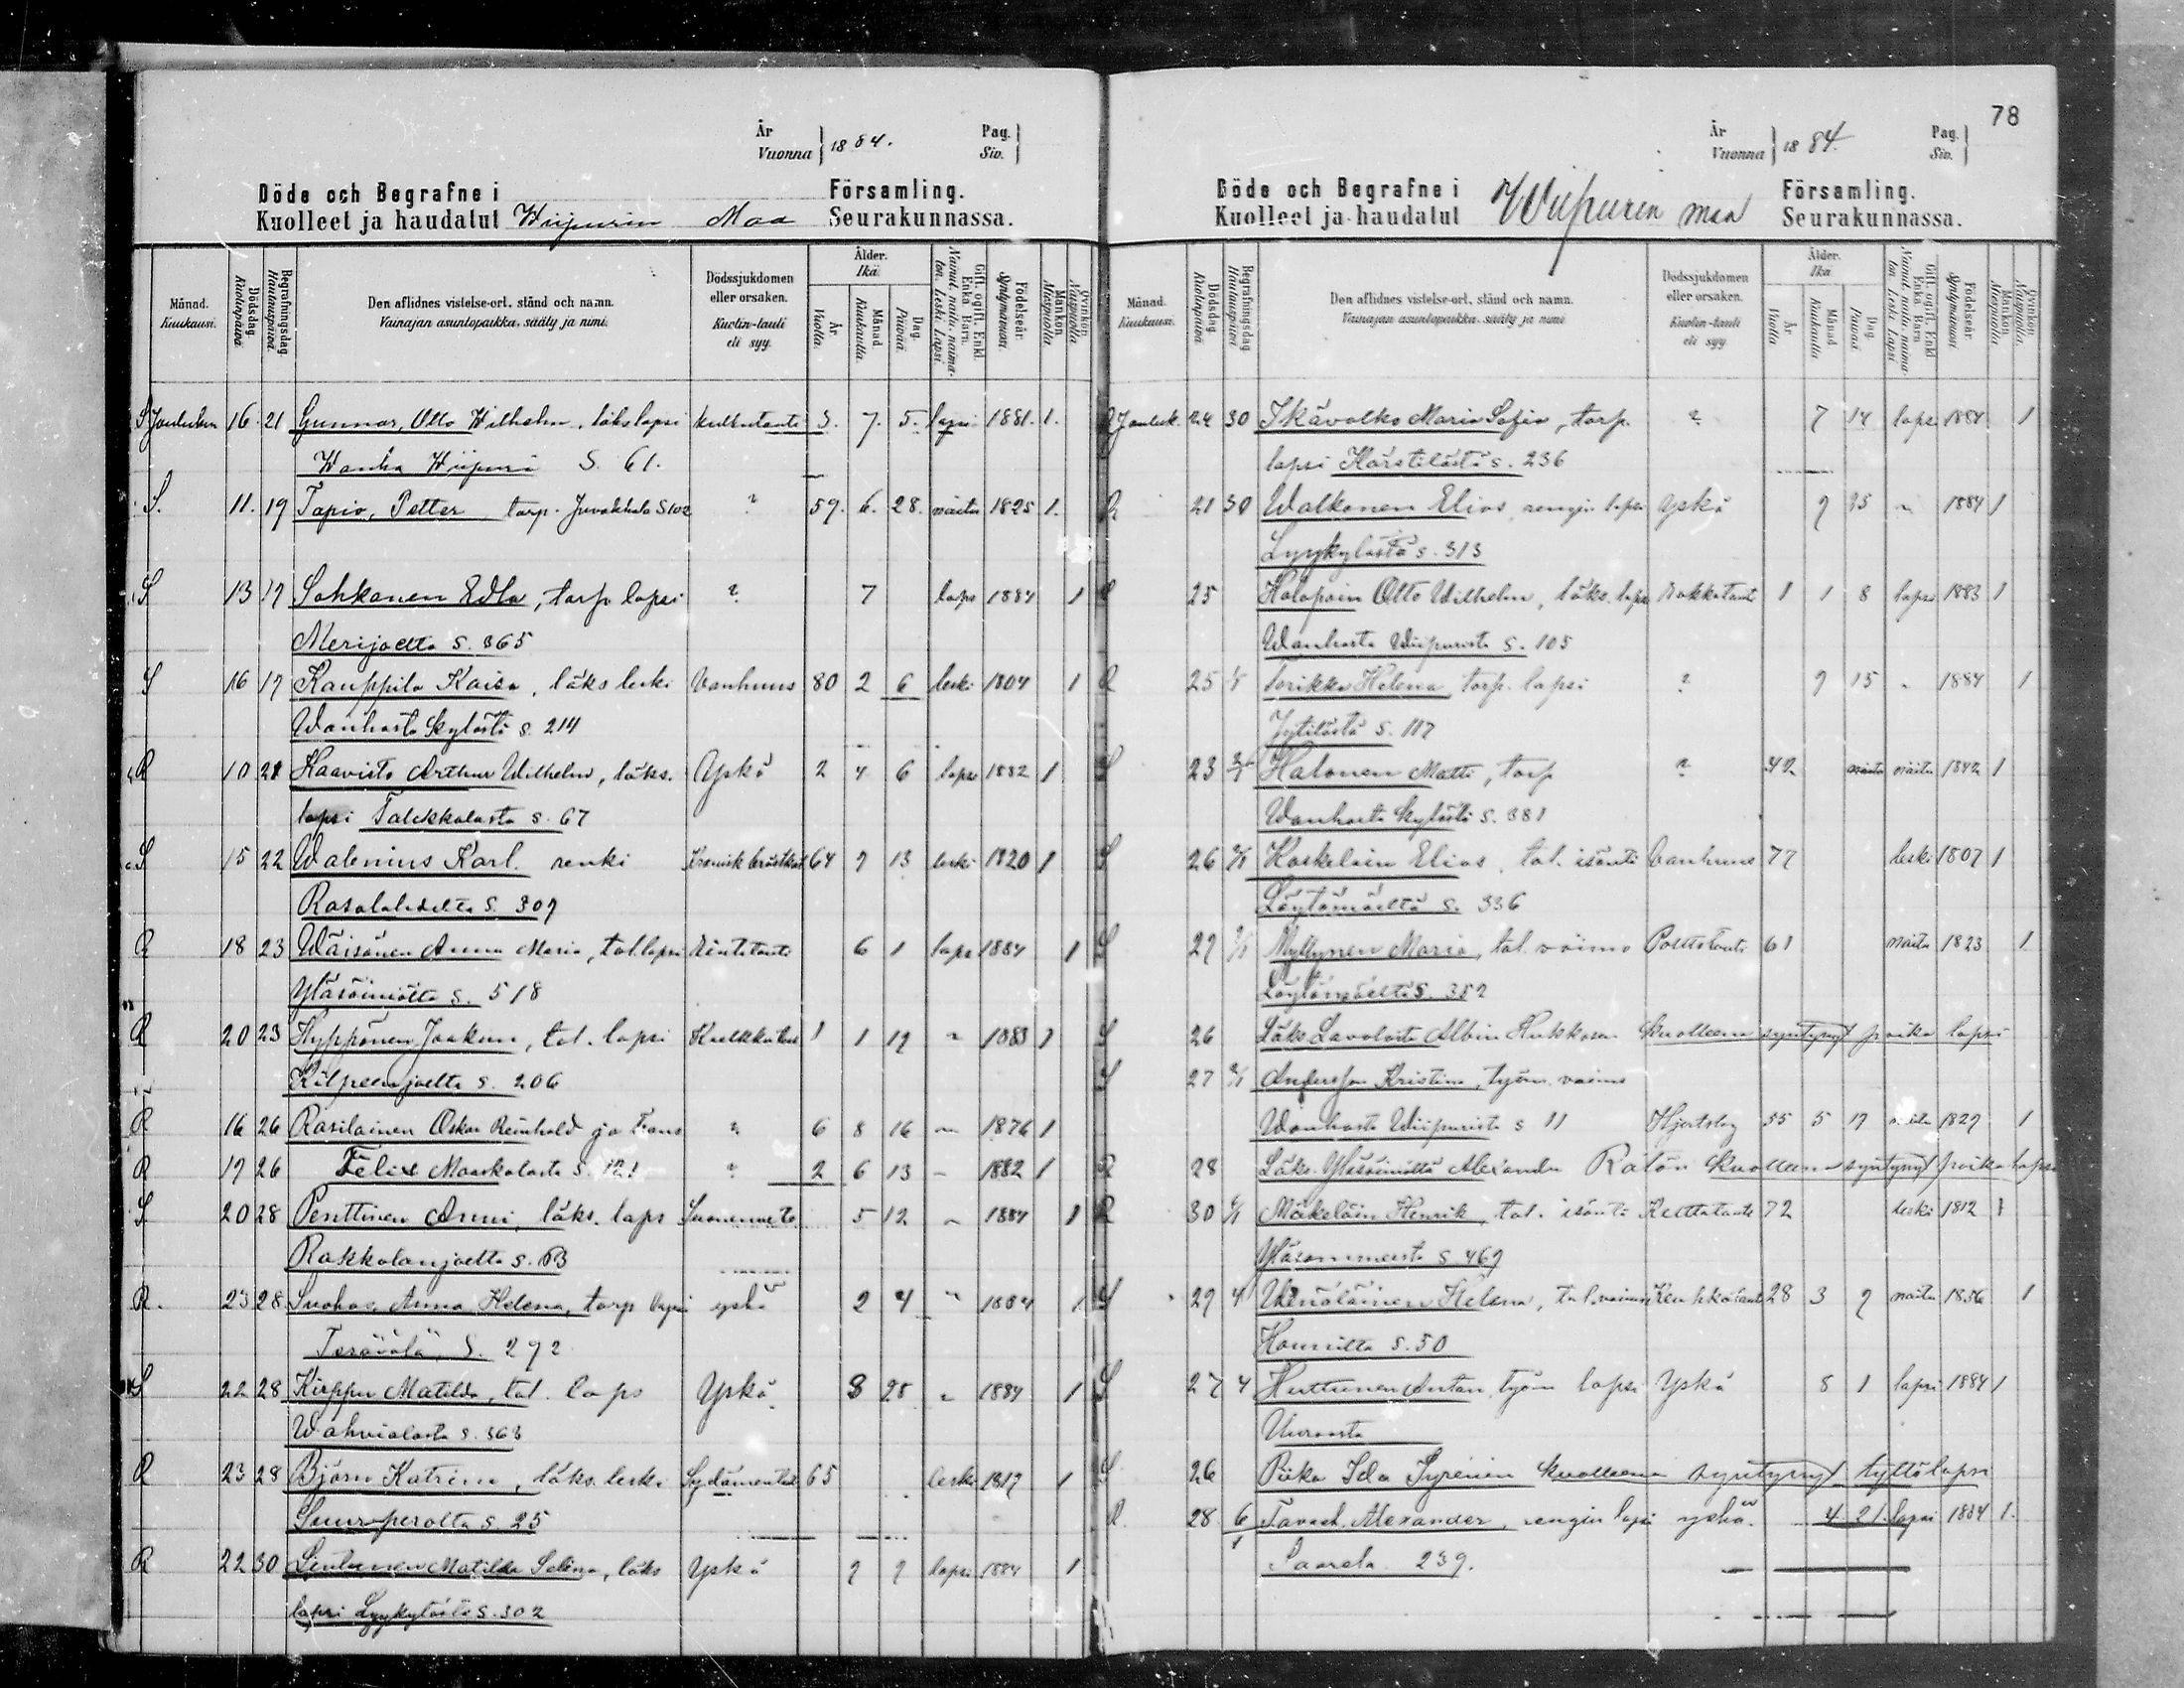 År
Vuonna 1884.
Pag.
Siv.
Döde och Begrafne i Församling.
Kuolleet ja haudatut Wiipurin Maa Seurakunnassa.
Månad. Kuukausi.
Dödsdag. Kuolinpäivä.
Begrafningsdag. Hautauspäivä.
Den aflidnes vistelse-ort, stånd och namn.
Vainajan asuntopaikka, sääty ja nimi.
Dödssjukdomen eller orsaken.
Kuolin-tauti eli syy.
Ålder. Ikä.
År. Vuotta.
Månad. Kuukautta.
Dag. Päivää.
Gift, ogift, Enkl. Enka. Barn.
Nainut, naitu, naimaton. Leski. Lapsi.
Födelseår. Syntymävuosi.
Mankön. Miespuolia.
Qvinkön. Naispuolia.
S Joulukuu 16. 21 Gunnar, Otto Wilhelm, läks lapsi 3. 7. 5. lapsi 1881. 1.
Wanha Wiipuri S. 61.
S. 11. 19 Tapio, Petter torp. Juvakkala S 102 ? 59. 6. 28. naitu 1825 1.
S 13 17 Sohkanen Edla, torp lapsi ? 7 laps 1884 1
Merijoelta s. 365
S 16 17 Kauppila Kaisa, läks leski Vanhuus 80 2 6 leski 1804 1
Wanhasta Kylästä s. 214
R 10 21 Haavisto Arthur Wilhelm, läks. Yskä 2 4 6 laps 1882 1
lapsi Talikkalasta s. 67
S 15 22 Walenius Karl. renki 64 7 13 leski 1820 1
Rasalahdelta S. 307
R 18 23 Wäisänen Anna Maria, tal. lapsi Rintatauti 6 1 laps 1884 1
Yläsäiniöltä s. 518
R 20 23 Hyppönen Joakim, tal. lapsi 1 1 19 " 1883 1
Kilpeenjoelta s. 206
R 16 26 Rasilainen Oskar Reinhold ja Frans ? 6 8 16 " 1876 1
R 17 26 Felix Maaskolasta S. 121 ? 2 6 13 " 1882 1
S 20 28 Penttinen Anni, läks. laps 5 12 " 1884 1
Rakkolanjoelta s.
R. 23 28. Suohas, Anna Helena, torp lapsi yskä 2 4 " 1884 1
Terävälä, S. 292
S 22 28 Kirppu Matilda, tal. laps Yskä 8 28 " 1884 1
Wahvialasta s. 363
R 23 28 Björn Katrina, läks. leski 65 leski 1819 1
Suurperolta s. 25
R 22 30 Lintunen Matilda Selina, läks Yskä 9 9 lapsi 1884 1
lapsi Lyykylästä s. 302
78
År
Vuonna 1884.
Pag.
Siv.
Döde och Begrafne i Församling.
Kuolleet ja haudatut Wiipurin maa Seurakunnassa.
Månad. Kuukausi.
Dödsdag. Kuolinpäivä.
Begrafningsdag. Hautauspäivä.
Den aflidnes vistelse-ort, stånd och namn.
Vainajan asuntopaikka, sääty ja nimi
Dödssjukdomen eller orsaken.
Kuolin-tauti eli syy
Ålder. Ikä
År Vuotta
Månad. Kuukautta
Dag. Päivää
Gift, ogift, Enkl. Enka. Barn.
Nainut, naitu, naimaton. Leski. Lapsi.
Födelseår. Syntymävuosi
Mankön. Miespuolia
Qvinkön. Naispuolia.
R Jouluk. 24 30 Ikävalko Maria Sofia, torp. ? 7 14 laps 1884 1
lapsi Kärstilästä s. 236
R 21 30 Walkonen Elias, rengin lapsi yskä 9 25 " 1884 1
Lyykylästä s. 313
25 Holopain Otto Wilhelm, läks. laps 1 1 8 lapsi 1883 1
Wanhasta Wiipurista s. 105
R 25 Helena torp. lapsi ? 9 15 " 1884 1
Jytilästä s. 117
S 23 Halonen Matti, torp ? 42 naitu 1842 1
Wanhasta Kylästä s. 381
S 26 Koskelain Elias, tal. isäntä Vanhuus 77 leski 1807 1
Löytömäeltä s. 336
S 27 Myllynen Maria, tal. vaimo Polttotauti 61 naitu 1823 1.
Löytömäeltä S. 352
S 26 Läks Lavolasta Albin Hukkasen kuolleena syntynyt poika lapsi
S 27 Andersson Kristina, työm. vaimo
Wanhasta Wiipurista s 11 Hjertslag 55 5 19 naitu 1829 1
R 28 Läks. Yläsäiniöltä Alexander Rätön kuolleena syntynyt poika lapsi
R 30 Mäkeläin Henrik, tal. isäntä 72 leski 1812 1
Yläsommeesta s 469
S 29 4 Wenäläinen Helena, tal. vaimo Keuhkotauti 28 3 9 naitu 1856 1
Hounilta s. 50
S 27 4 Huttunen Antan, työm lapsi Yskä 8 1 lapsi 1884 1
Uuraasta
S. 26 Piika Ida Syrenin kuolleena syntynyt tyttölapsi
R. 28. 6/1 Alexander, rengin lapsi yskä. 4 21. lapsi 1884 1.
Saarela 239.